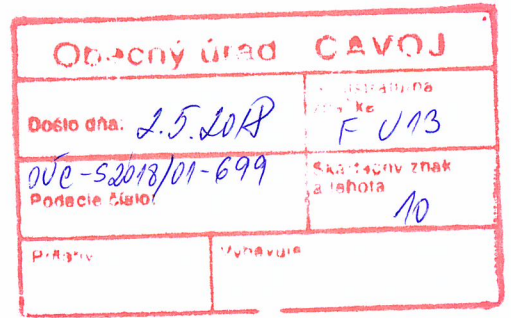 Obecný úrad CAVOJ
Došlo dňa: 2.5.2018
Registratúrna
značka
F U13
OÚC-S2018/01-699
Podacie číslo:
Skartačný znak
a lehota
10
Prílohy
Vybavuje